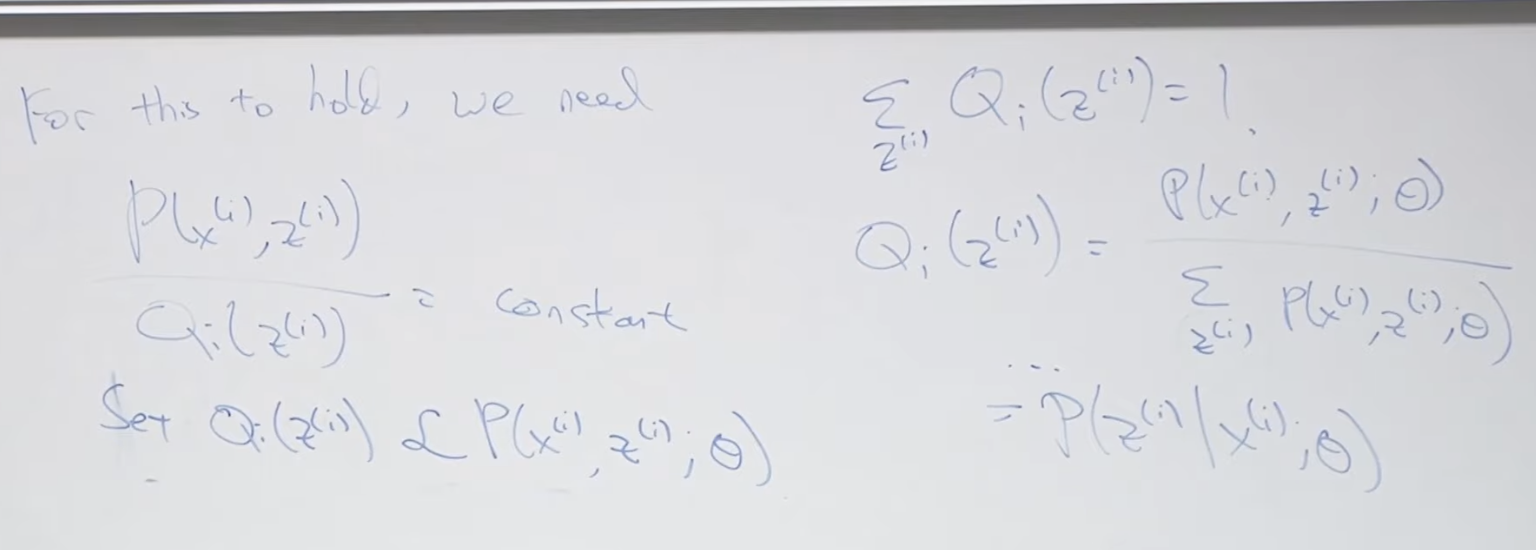 For this to hold, we need
P(x^(i), z^(i))
Q_i(z^(i))
= constant
Set Q_i(z^(i)) ∝ P(x^(i), z^(i); θ)
Σ_z^(i) Q_i(z^(i)) = 1.
Q_i(z^(i)) =
P(x^(i), z^(i); θ)
Σ_z^(i) P(x^(i), z^(i); θ)
...
= P(z^(i) | x^(i); θ)